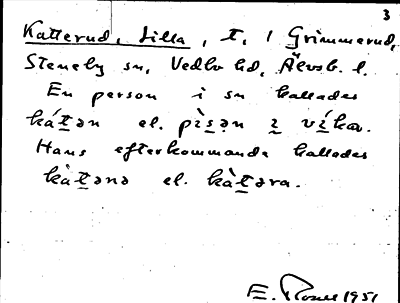 3
Katterud, Lilla, t. i Grimmerud,
Steneby sn, Vedbo hd, Älvsb. l.
En person i sn kallades
ká̀tən el. pìsən i víka.
Hans efterkommande kallades
kàtənə el. kàtəra.
E. Rosell 1951